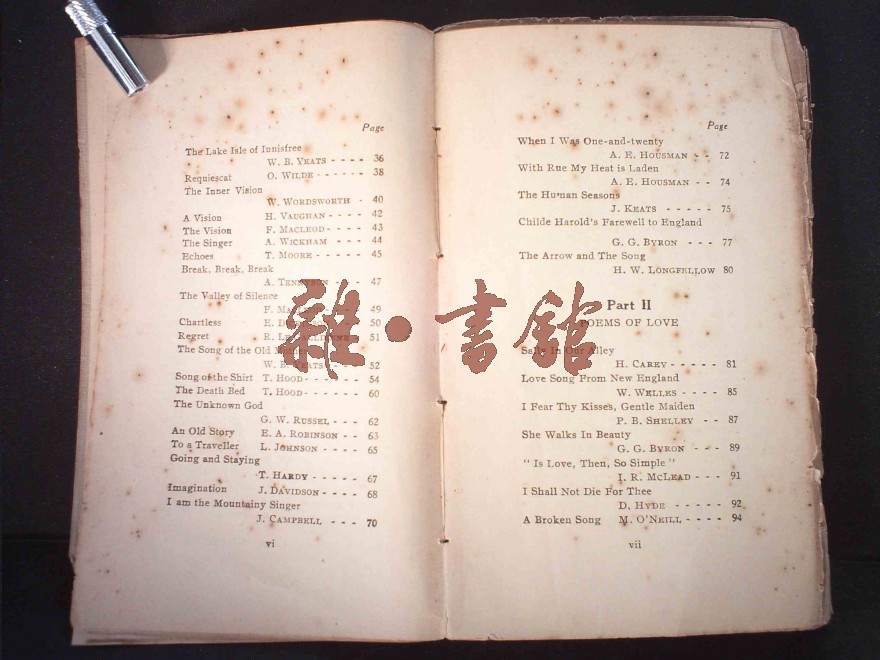 Page
The Lake Isle of Innisfree
W. B. YEATS - - - - 36
Requiescat O. WILDE - - - - - - 38
The Inner Vision
W. WORDSWORTH - 40
A Vision H. VAUGHAN - - - - 42
The Vision F. MACLEOD - - - - 43
The Singer A. WICKHAM - - - 44
Echoes T. MOORE - - - - - 45
Break, Break, Break
A. TENNYSON - - - - 47
The Valley of Silence
F. 49
Chartless E. 50
Regret R. 51
The Song of the Old Mother
W. B. YEATS - - - 52
Song of the Shirt T. HOOD - - - - - - 54
The Death Bed T. HOOD - - - - - - 60
The Unknown God
G. W. RUSSEL - - - 62
An Old Story E. A. ROBINSON - - 63
To a Traveller L. JOHNSON - - - - 65
Going and Staying
T. HARDY - - - - - 67
Imagination J. DAVIDSON - - - - 68
I am the Mountainy Singer
J. CAMPBELL - - - 70
vi
Page
When I Was One-and-twenty
A. E. HOUSMAN - - 72
With Rue My Heat is Laden
A. E. HOUSMAN - - 74
The Human Seasons
J. KEATS - - - - - 75
Childe Harold's Farewell to England
G. G. BYRON - - - 77
The Arrow and The Song
H. W. LONGFELLOW 80
Part II
POEMS OF LOVE
Sally In Our Alley
H. CAREY - - - - - 81
Love Song From New England
W. WELLES - - - - 85
I Fear Thy Kisses, Gentle Maiden
P. B. SHELLEY - - 87
She Walks In Beauty
G. G. BYRON - - - 89
" Is Love, Then, So Simple "
I. R. MCLEAD - - - 91
I Shall Not Die For Thee
D. HYDE - - - - - 92
A Broken Song M. O'NEILL - - - - - 94
vii
雜·書館